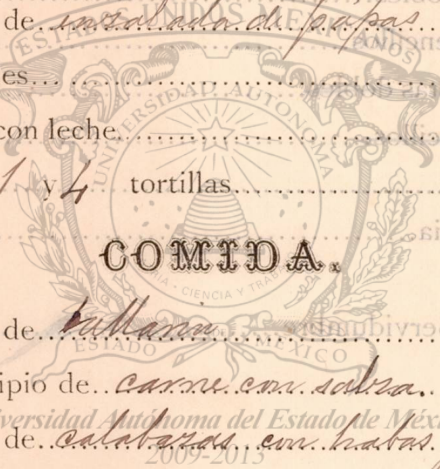 de ensalada de papas
es...
con leche
1 y 4 tortillas
COMIDA.
de
ervidumbre
ipio de carne con salsa.
de calabazas con habas
UNIDAS MEX
UNIVERSIDAD AUTONOMA
CIENCIA Y TRA
ESTADO DE MEXICO
versidad Autónoma del Estado de Méxi
2009-2013